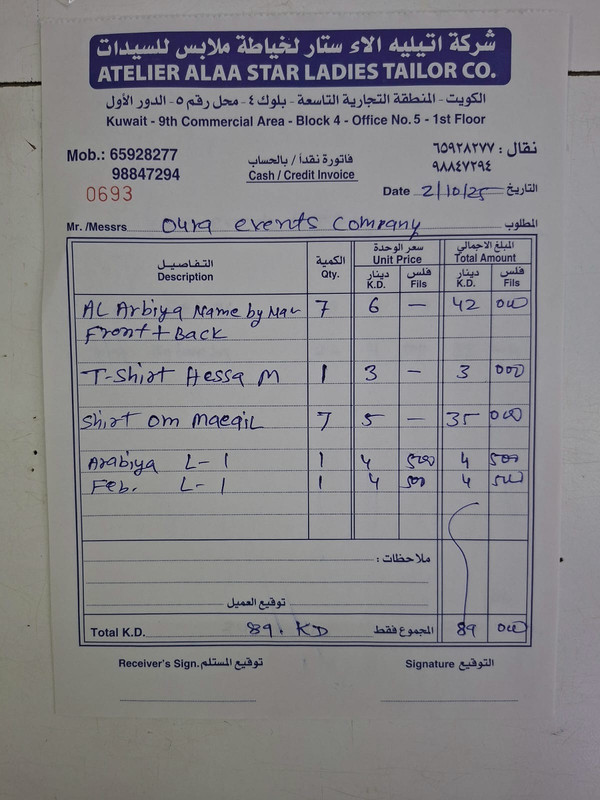 شركة اتيليه الاء ستار لخياطة ملابس للسيدات
ATELIER ALAA STAR LADIES TAILOR CO.
الكويت - المنطقة التجارية التاسعة - بلوك ٤ - محل رقم ٥ - الدور الأول
Kuwait - 9th Commercial Area - Block 4 - Office No. 5 - 1st Floor
Mob.: 65928277 فاتورة نقداً / بالحساب نقال : ٦٥٩٢٨٢٧٧
98847294 Cash / Credit Invoice ٩٨٨٤٧٢٩٤
0693 Date 2/10/25 التاريخ
Mr. /Messrs Oura events Company المطلوب
التفاصيل الكمية سعر الوحدة المبلغ الاجمالي
Description Qty. Unit Price Total Amount
دينار فلس دينار فلس
K.D. Fils K.D. Fils
AL Arbiya Name by Name 7 6 — 42 000
Front + Back
T-Shirt Hessa M 1 3 — 3 000
Shirt Om Maeqil 7 5 — 35 000
Arabiya L-1 1 4 500 4 500
Feb. L-1 1 4 500 4 500
ملاحظات :
توقيع العميل
Total K.D. 89. KD المجموع فقط 89 000
Receiver's Sign. توقيع المستلم Signature التوقيع